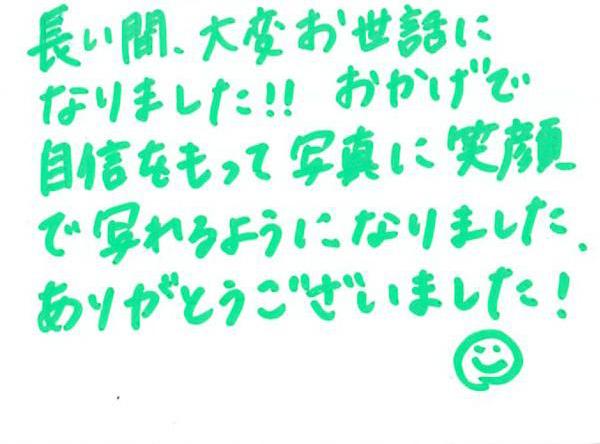 長い間、大変お世話に
なりました!! おかげで
自信をもって写真に笑顔
で写れるようになりました、
ありがとうございました!